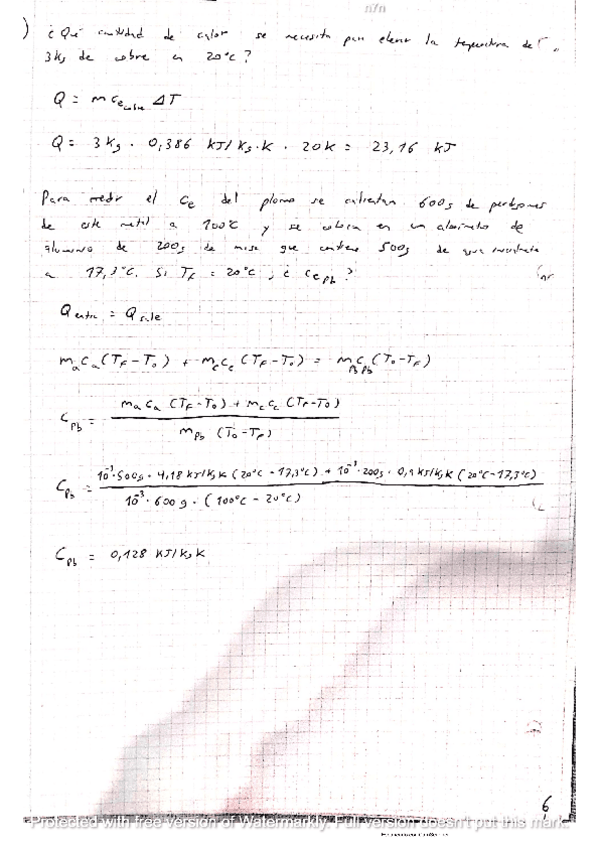 n7n
) ¿Qué cantidad de calor se necesita para elevar la temperatura de
3kg de cobre en 20°C?
Q = m ce cobre ΔT
Q = 3 Kg · 0,386 KJ/Kg·K · 20K = 23,16 KJ
Para medir el ce del plomo se calientan 600g de perdigones
de este metal a 100°C y se colocan en un calorímetro de
aluminio de 200g de masa que contiene 500g de agua
a 17,3°C. Si TF = 20°C, ¿ ce pb?
Q entra = Q sale
ma ca (TF - To) + mc cc (TF - To) = mpb cpb (To - TF)
Cpb = ma ca (TF - To) + mc cc (TF - To)
mpb (To - TF)
Cpb = 10⁻³·500g · 4,18 KJ/Kg K (20°C - 17,3°C) + 10⁻³·200g · 0,9 KJ/Kg K (20°C - 17,3°C)
10⁻³ · 600 g · (100°C - 20°C)
Cpb = 0,128 KJ/Kg K
6
Protected with free version of Watermarkly. Full version doesn't put this mark.